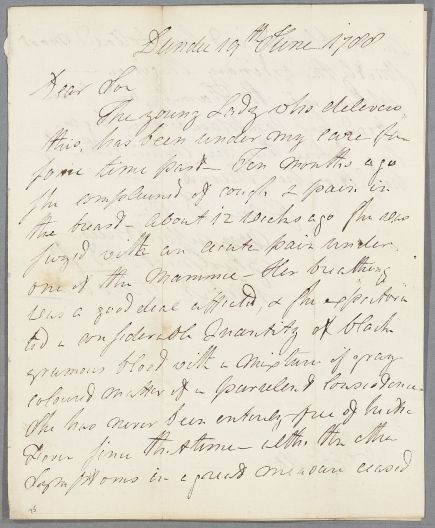 Dundee 19th June 1788
Dear Sir
The young Lady who delivers
this, has been under my care for
some time past - Ten months ago
she complained of cough & pain in
the breast - About 12 weeks ago she was
seized with an acute pain under
one of the Mammae - Her breathing
was a good deal affected, & she expectora
ted a considerable Quantity of black
grumous blood with a mixture of gray
coloured matter of a Purulent consistence
She has never been entirely free of hectic
Fever since that time - altho the other
Symptoms in a great measure ceased